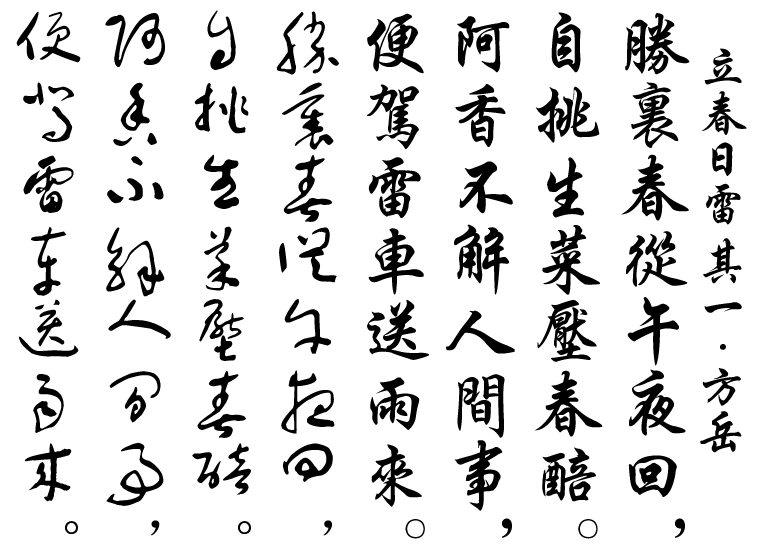 立春日雷 其一．方岳
勝裏春從午夜回，
自挑生菜壓春醅○
阿香不解人間事，
便駕雷車送雨來○
勝裏春從午夜回，
自挑生菜壓春醅。
阿香不解人間事，
便駕雷車送雨來。